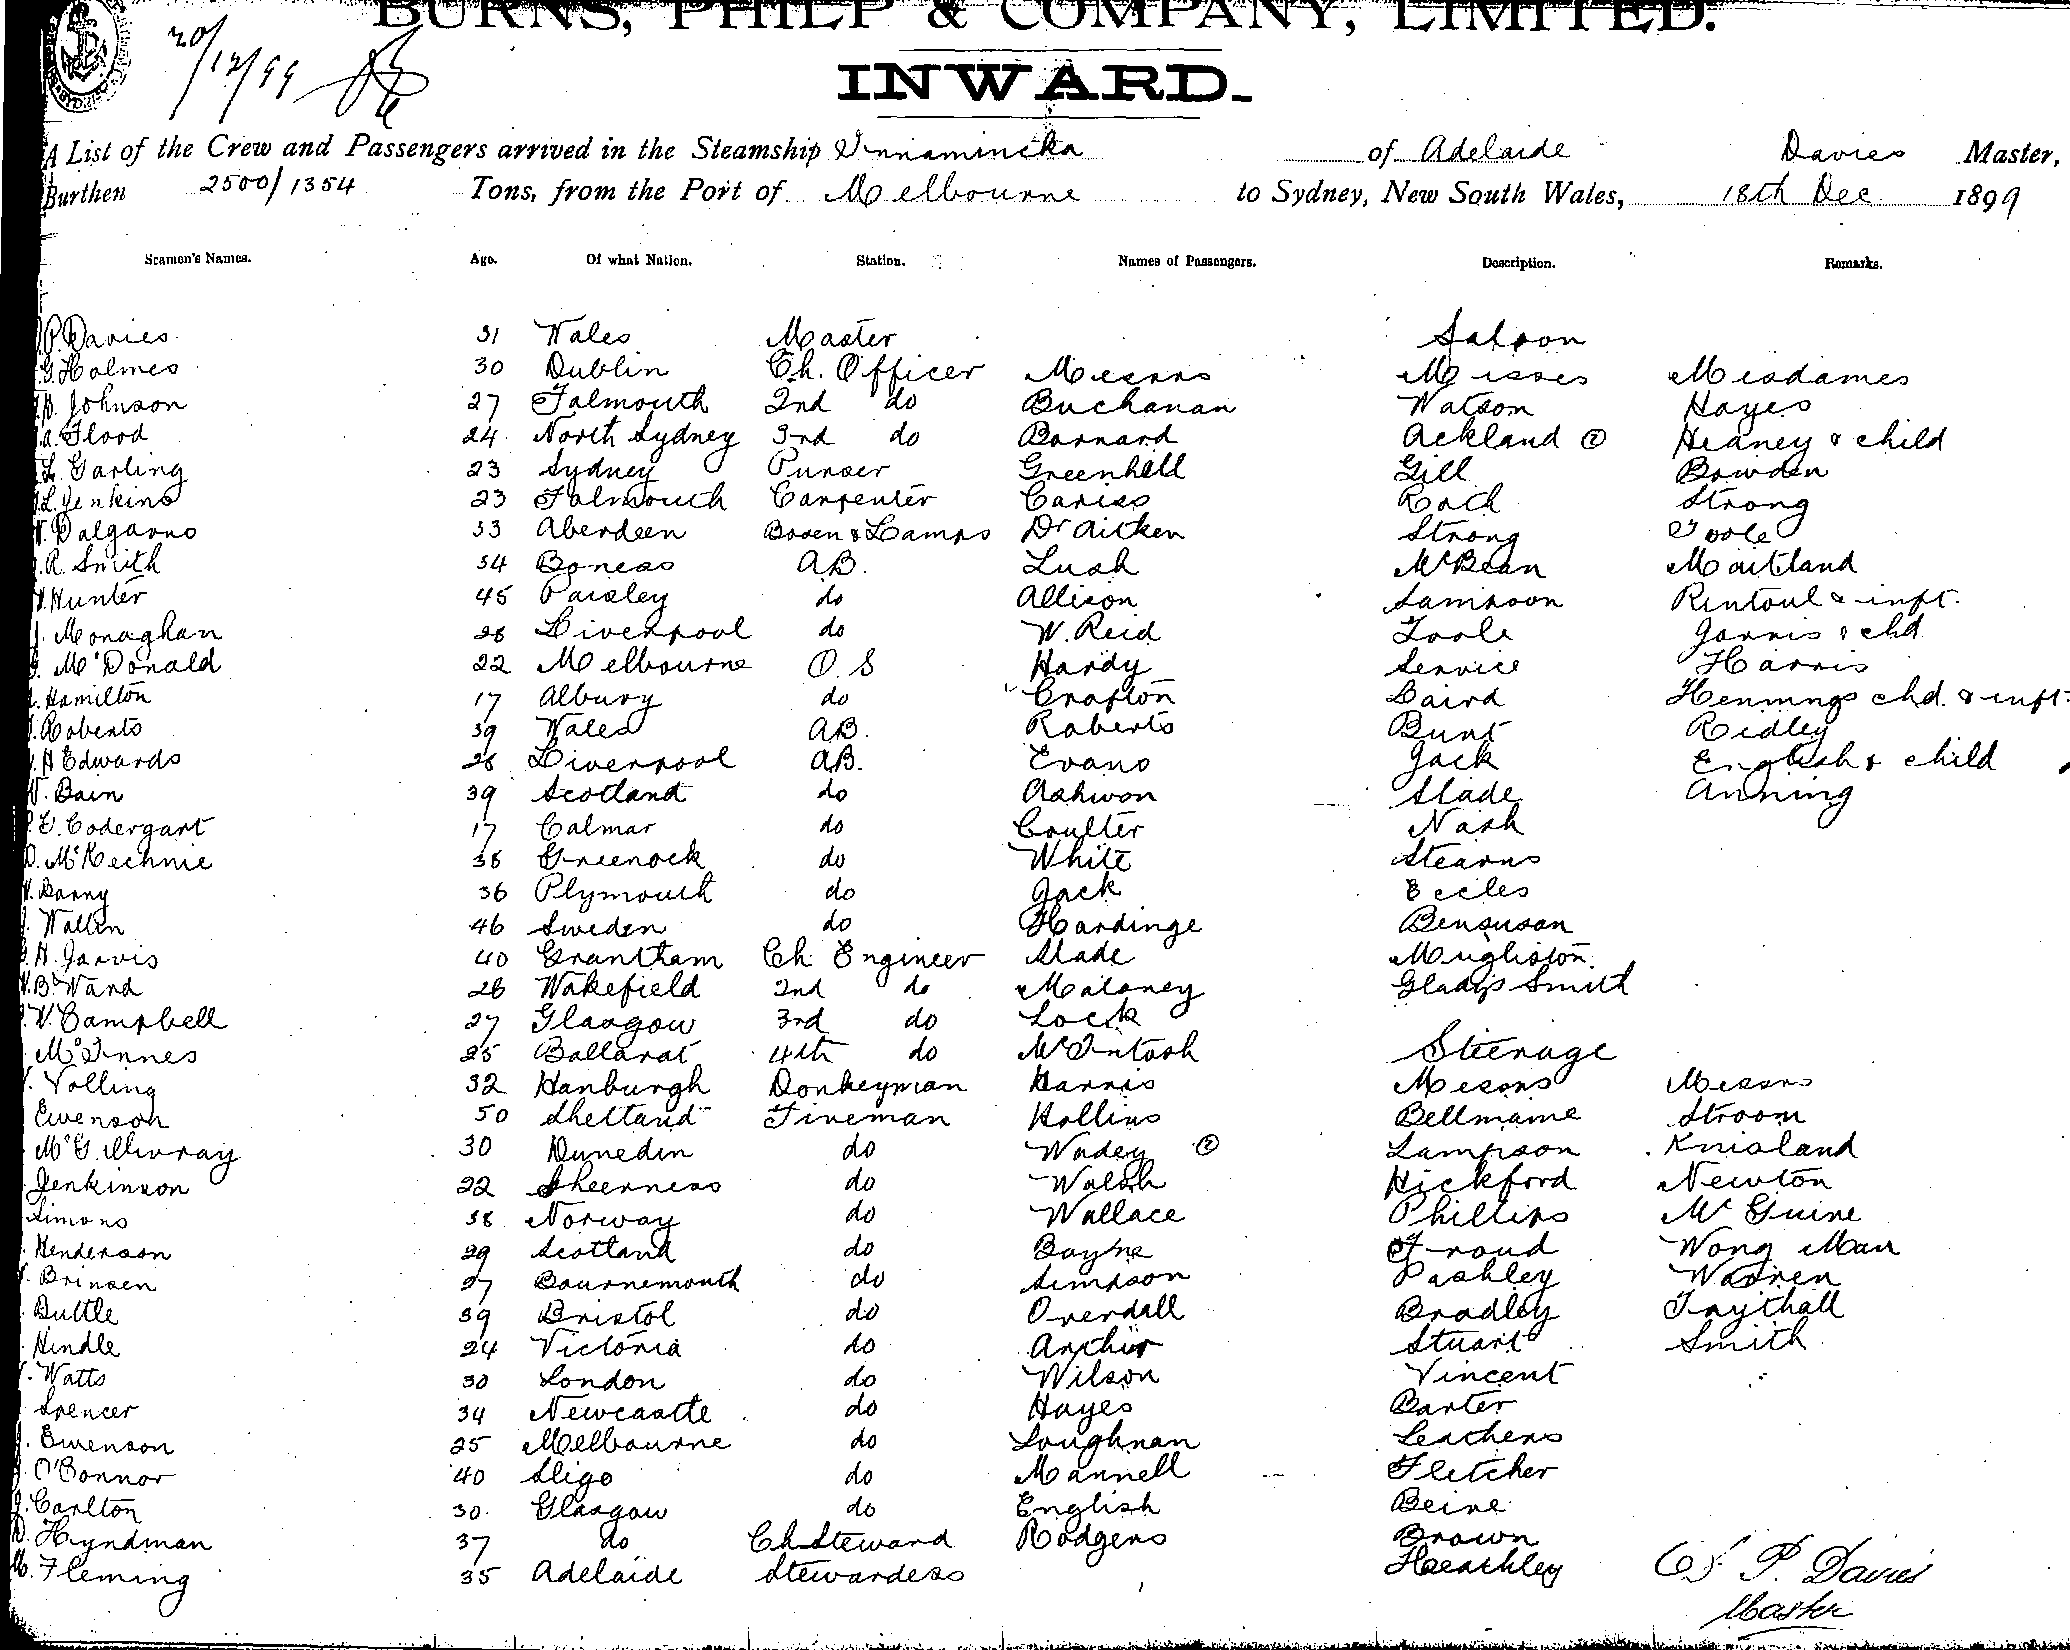 BURNS, PHILP & COMPANY, LIMITED.
20/12/99
INWARD.
A List of the Crew and Passengers arrived in the Steamship Innamincka of Adelaide Davies Master,
Burthen 2500/1354 Tons, from the Port of Melbourne to Sydney, New South Wales, 18th Dec 1899
Seamen's Names. Age. Of what Nation. Station. Names of Passengers. Description. Remarks.
P. Davies 31 Wales Master Saloon
G. Holmes 30 Dublin Ch. Officer Messrs Misses Mesdames
Johnson 27 Falmouth 2nd do Buchanan Watson Hayes
A. Flood 24 North Sydney 3rd do Barnard Ackland (2) Heaney & child
L. Garling 23 Sydney Purser Greenhill Gill Bowden
L. Jenkins 23 Falmouth Carpenter Cariss Roch Strong
Dalgarno 33 Aberdeen Bosen & Lamps Dr Aitken Strong Toole
R. Smith 34 Boness A.B. Lush McBean Maitland
Hunter 45 Paisley do Allison Sampson Rintoul & inft.
J. Monaghan 28 Liverpool do W. Reid Toole Jarvis & chd
McDonald 22 Melbourne O.S Hardy Service Harris
Hamilton 17 Albury do Crafton Baird Hennings chd. & inft.
Roberts 39 Wales A.B. Roberts Bunt Ridley
H Edwards 26 Liverpool A.B. Evans Jack English & child
W. Bain 39 Scotland do Ashwon Slade Anning
Codergart 17 Calmar do Coulter Nash
D. McKechnie 38 Greenock do White Stearns
Barny 36 Plymouth do Jack Eccles
Wallin 46 Sweden do Hardinge Bensusan
H. Jarvis 40 Grantham Ch Engineer Slade Mugliston
W. B. Ward 26 Wakefield 2nd do Malaney Gladys Smith
W. Campbell 27 Glasgow 3rd do Lock
McInnes 25 Ballarat 4th do McIntosh Steerage
Volling 32 Hanburgh Donkeyman Harris Messrs Messrs
Ewenson 50 Shetland Fireman Hollins Bellmaine Stroom
McGillivray 30 Dunedin do Wadey (2) Lampson Knisland
Jenkinson 22 Sheerness do Walsh Hickford Newton
Simons 38 Norway do Wallace Phillips McGuine
Henderson 29 Scotland do Bayne Froud Wong Man
Brinsen 27 Bournemouth do Simpson Pashley Warren
Buttle 39 Bristol do Overdall Bradley Traythall
Hindle 24 Victoria do Arthur Stuart Smith
Watts 30 London do Wilson Vincent
Spencer 34 Newcastle do Hayes Barter
Ewenson 25 Melbourne do Loughnan Leathers
J. O'Connor 40 Sligo do Mannell Fletcher
J. Carlton 30. Glasgow do English Beire
D. Hyndman 37 do Ch Steward Rodgers Brown
M. Fleming 35 Adelaide Stewardess Heathley
P. Davies
Master